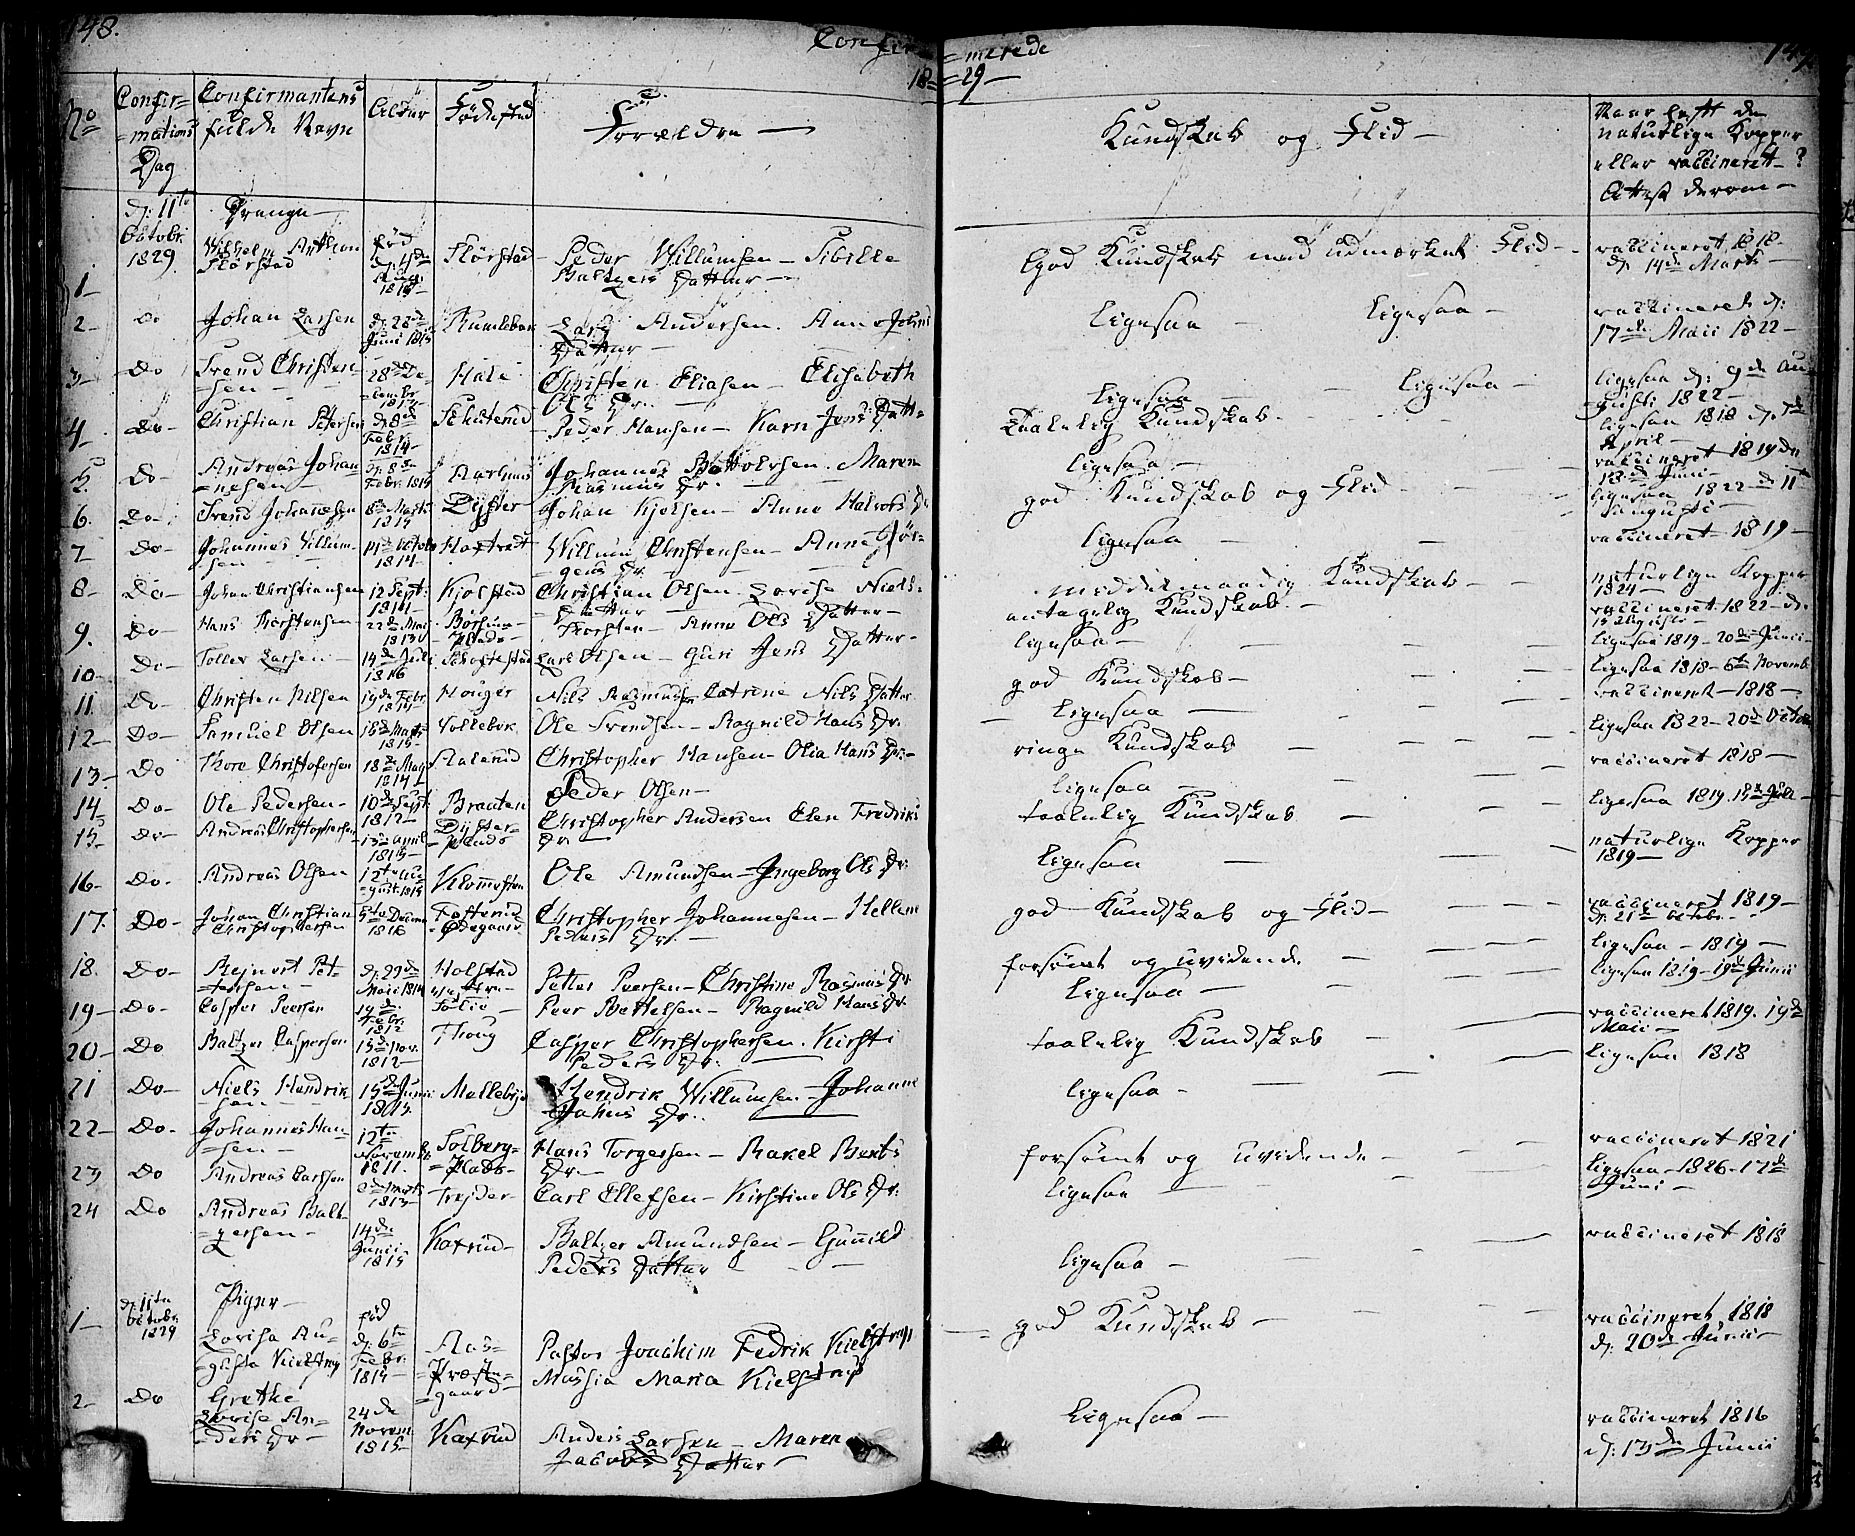 148.
Confir=
=merede
149
18=
=29-
No
Confir=
=mations
Dag
Confirmantens
fulde Navn
Alder
Fødested
Forældre
Kundskab og Flid
Naar havt de
naturlige Kopper
eller vaccineret?
Attest derom
d: 11te Octobr. 1829
Drenge
1 Wilhelm Anthon Flørstad født Flørstad Peder Willumsen - Sibille Baltzers Datter God Kundskab med udmærket Flid vaccineret 1818 d: 14de Marts
2 Do Johan Larsen d: 28de Juni 1815 Lars Andersen. Anne Johns Datter Ligesaa Ligesaa vaccineret d: 17de Maii 1822
3 Do Svend Christen=sen 28de De=cembr. Christen Eliasen - Elisabeth Ols Dr. Ligesaa Ligesaa ligesaa d: 9de Au=gusti 1822
4 Do Christian Petersen d: 8de Febr. 1814 Peder Hansen - Karn Jens Datt= Taalelig Kundskab ligesaa 1818 d: April
5 Do Andreas Johan=nesen d: 8de Febr. 1815 Johannes Maren Rasmus Dr. ligesaa vaccineret 1819 Juni
6. Do Svend Johannesen 8de Marts 1815 Dyster Johan Anne Halvors Dr. god Kundskab og Flid ligesaa 1822 Augusti
7 Do Johannes Villum=sen 14de Octobr 1814 Haxtvedt Willum Christensen - Anne Jør=gens Dr. ligesaa vaccineret 1819
8 Do Johan Christiansen 12 Sept: 1814 Kjølstad Christian Olsen. Lovise Niels=Datter middelmaadig Kundskab naturlige Kopper 1824
9. Do Hans Torstensen 22de Maii Torsten - Anne Ols Datter antagelig Kundskab vaccineret 1822 d: 15 Augusti
10 Do Tollev Larsen 14de Juli 1816 Lars Olsen - Guri Jens Datter ligesaa ligesaa 1819 - 20de Junii
11. Do Christen Nilsen 19de Febr. 1815 Houger Nils Rasmussen Catrine Nils Datter god Kundskab ligesaa 1818 - 6te Novemb
12 Do Samuel Olsen 15de Marts 1815 Vollebek Ole Svendsen - Ragnild Hans Dr. ligesaa vaccineret 1818
13 Do Thore Christofersen 18de 1814 Christopher Hansen - Olia Hans Dr. ringe Kundskab ligesaa 1822 - 20de Octob
14 Do Ole Pedersen 10de Sept. 1812 Brauten Peder Olsen ligesaa vaccineret 1818
15 Do Andreas Christophersen 13de april 1815 Dyster=Plads Christopher Andersen Elen Fredriks Dr. taalelig Kundskab ligesaa 1819. Juli
16 Do Andreas Olsen 12te Au=gust. 1815 Ole Amundsen - Ingeborg Ols Dr. ligesaa naturlige Kopper 1819
17. Do Johan Christian Christophersen 5te Decem 1816 Fosterud=Ødegaard Christopher Johannesen - Hellene Peders Dr. god Kundskab og Flid vaccineret 1819 d: 21de Octobr.
18. Do Rejnert Pet=tersen d: 29de Maii 1814 Holstad Petter Peersen - Christine Rasmus Dr. forsømt og uvidende ligesaa - 1819
19 Do Casper Peersen 14de Febr. 1812 Peer Bottelsen - Ragnild Hans Dr. ligesaa ligesaa 1819 - 19de Junii
20 Do Baltzer Caspersen 15de Nov. 1812 Casper Christophersen. Kirsti Peders Dr. taalelig Kundskab vaccineret 1819. 19de Maii
21 Do Niels Hendrik=sen 15de Junii 1815 Mellebye Hendrik Willumsen - Johanne Johns Dr. ligesaa ligesaa 1818
22 Do Johannes Han=sen 12te Novemb. 1811. Solberg=Plads Hans Torgersen - Rakel Berts Dr. forsømt og uvidende vaccineret 1821
23 Do Andreas Carlsen Marts 1813 Trejder Carl Ellefsen - Kirstine Ols Dr. ligesaa ligesaa - 1826 - 17de Juni
24 Do Andreas Balt=zersen 14de Junii 1815 Kaxrud Baltzer Amundsen - Gunnild Peders Datter ligesaa vaccineret 1818
Piger
1 d: 11te Octobr. 1829 Lovisa Au=gusta Kielstrup født d: 6te Febr. 1815 Aas=Præste=gaard Pastor Joachim Fedrik Kielstrup Massia Maria Kielstrup god Kundskab vaccineret 1818 d: 20de Junii
2 Do Grethe Lovise An=ders Dr 24de Novem 1815 Kaxrud Anders Larsen - Maren Jacobs Datter ligesaa vaccineret 1816 d: 13de Junii